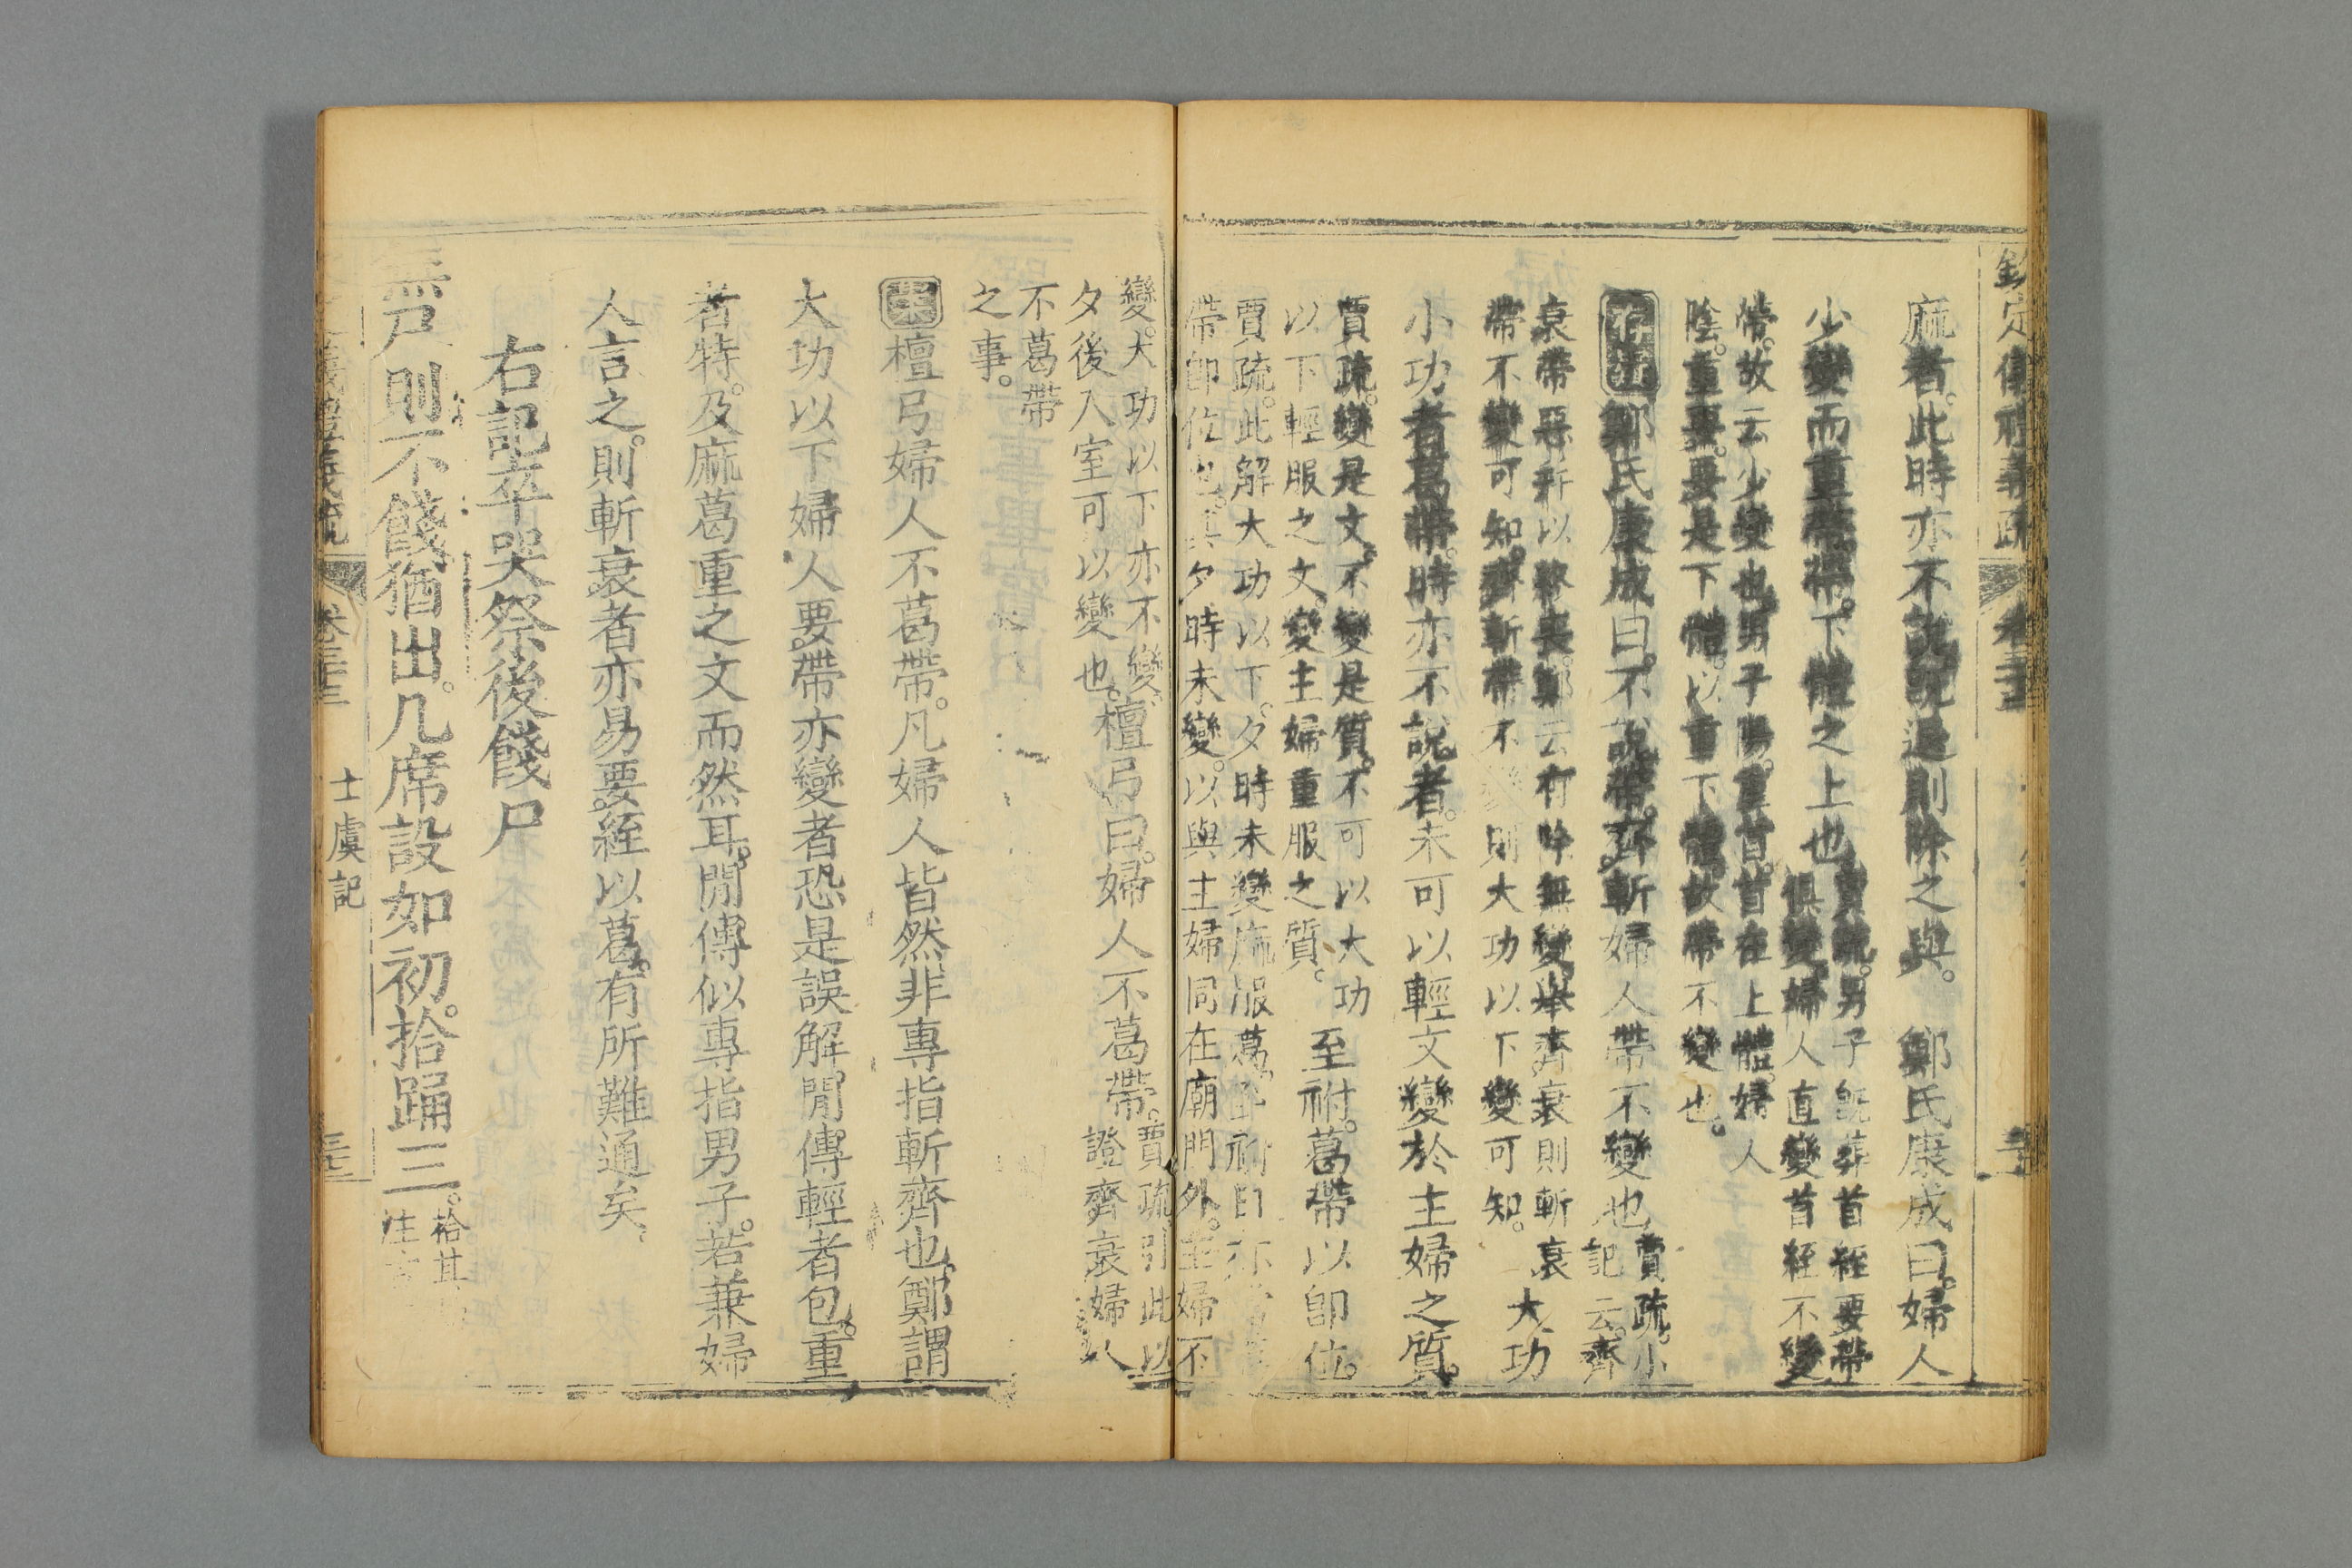 欽定儀禮義疏 卷三十三
麻者此時亦不說說過則除之與 鄭氏康成曰婦人
少變而重帶帶下體之上也賈疏男子旣葬首絰要帶
俱變婦人直變首絰不變
帶故云少變也男子陽重首首在上體婦人
陰重要要是下體以重下體故帶不變也
存疑鄭氏康成曰不說帶齊斬婦人帶不變也賈疏小
記云齊
衰帶惡笄以終喪鄭云有除無變舉齊衰則斬衰
帶不變可知齊斬帶不變則大功以下變可知 大功
小功者葛帶時亦不說者未可以輕文變於主婦之質
賈疏變是文不變是質不可以大功
以下輕服之文變主婦重服之質 至祔葛帶以卽位
賈疏此解大功以下夕時未變麻服葛至祔日亦
帶卽位也其夕時未變以與主婦同在廟門外主婦不
變大功以下亦不變
夕後入室可以變也檀弓曰婦人不葛帶賈疏引此以
證齊衰婦人
不葛帶
之事
案檀弓婦人不葛帶凡婦人皆然非專指斬齊也鄭謂
大功以下婦人要帶亦變者恐是誤解閒傳輕者包重
者特及麻葛重之文而然耳閒傳似專指男子若兼婦
人言之則斬衰者亦易要絰以葛有所難通矣
右記卒哭祭後餞尸
無尸則不餞猶出几席設如初拾踊三拾其
注
義禮義疏 卷三十三 士虞記 三十三